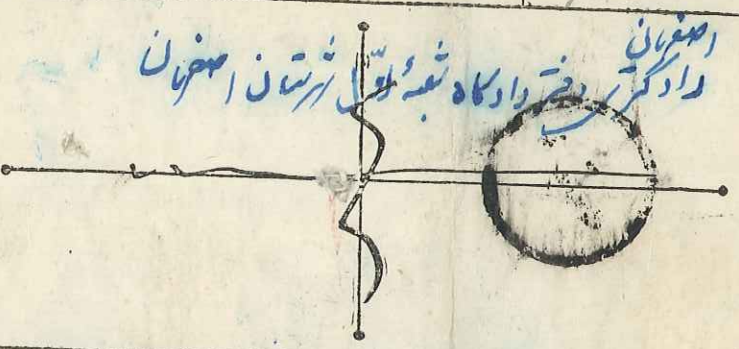 اصفهان
دادگستری دفتر دادگاه شعبهٔ اول شهرستان اصفهان